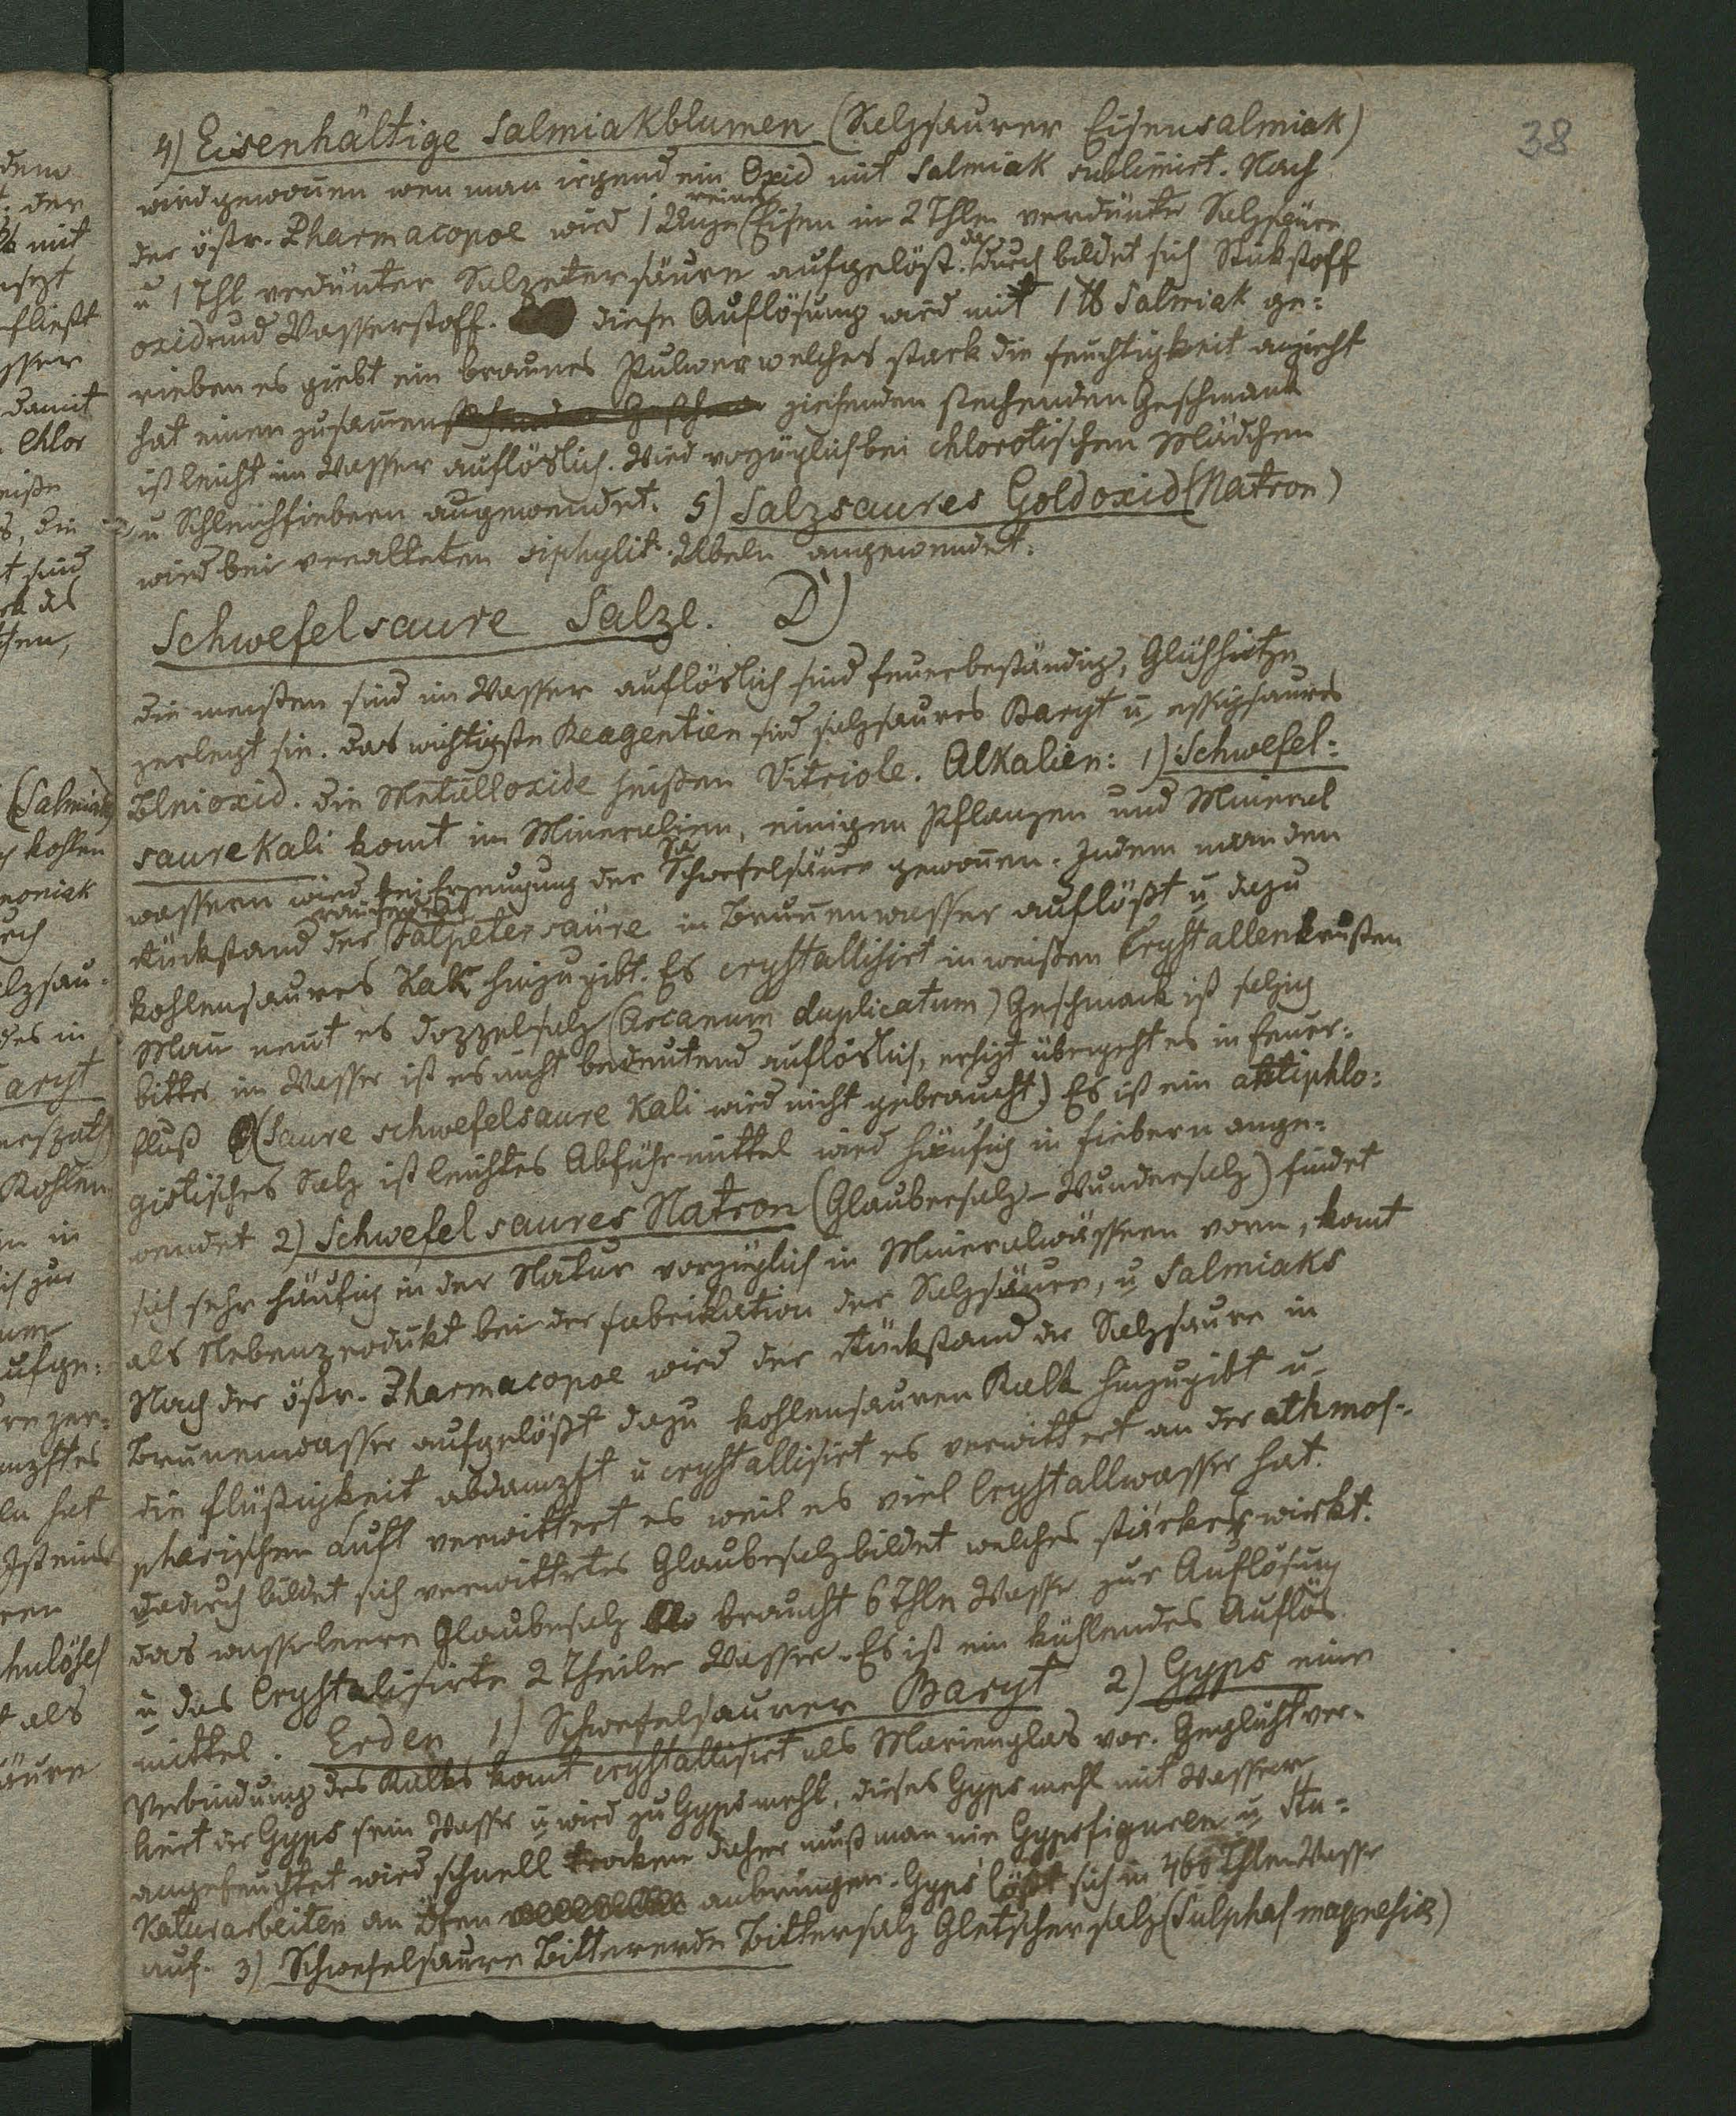 38
4) Eisenhältige Salmiakblumen (Salzsaurer Eisensalmiak)
wird gewonen wen man irgend ein Oxid mit Salmiak sublimirt. Nach
der östr. Pharmacopoe wird 1 Unze reines Eisen in 2 Thln verdünte Salzsäure
u 1 Thl verdünter Salzetersäure aufgelöst. dadurch bildet sich Stikstoff
oxid und Wasserstoff. diese Auflösung wird mit 1 ℔ Salmiak ge=
rieben es giebt ein braunes Pulver welches stark die feuchtigkeit anzieht
hat einen zusamen ziehenden stechenden Geschmack
ist leicht im Wasser auflöslich. Wird vorzüglich bei chlorotischen Mädchen
u Schleichfiebern angewendet. 5) Salzsaures Goldoxid (Natron)
wird bei veralteten siphylit. Übeln angewendet.
Schwefelsaure Salze. D)
die meisten sind im Wasser auflöslich sind feuerbeständig, Glühhitze
zerlegt sie. das wichtigste Reagentien sind salzsaures Baryt u essigsaures
Bleioxid. die Metalloxide heißen Vitriole. Alkalien: 1) Schwefel=
saure Kali komt im Mineralien, einigen Pflanzen und Mineral
wassern wird bei Erzeugung der Schwefelsäure gewonen. Indem man den
Rückstand der rauchenden Salpetersäure in Brunenwasser auflößt u dazu
kohlensaures Kak hinzugibt. Es crystallisirt in weißen Crystallenkrusten
Man nent es Dozzelsalz (Arcanum duplicatum) Geschmack ist salzig
bitter im Wasser ist es nicht bedeutend auflöslich, erhizt übergeht es in feuer=
fluß (Saure schwefelsaure Kali wird nicht gebraucht) Es ist ein antiphlo=
gistisches Salz ist leichtes Abführmittel wird häufig in fiebern ange=
wendet 2) Schwefelsaures Natron (Glaubersalz – Wundersalz) findet
sich sehr häufig in der Natur vorzüglich in Mineralwässern vorn, komt
als Nebenzrodukt bei der fabrikation der Salzsäure, u Salmiaks
Nach der östr. Pharmacopoe wird der Rückstand der Salzsaure in
Brunenwasser aufgelößt dazu kohlensauren Kalk hinzugibt u
die flüßigkeit abdamzft u crystallisirt es verwittert an der athmos=
pharischen Luft verwittert es weil es viel Crystallwasser hat.
dadurch bildet sich verwittertes Glaubesalz bildet welches stärker wirkt.
das wasserleere Glaubesalz braucht 6 Thln Wasser zur Auflösung
u das Crystalisirte 2 Theiler Wasser. Es ist ein kühlendes Auflös
mittel. Erden 1) Schwefelsaurer Baryt 2) Gyps eine
Verbindung des Kalks komt crystallisirt als Marienglas vor. Geglüht ver=
liert der Gyps sein Wasser u wird zu Gypsmehl, dieses Gypsmehl mit Wasser
angefeuchtet wird schnell trocken daher muß man nie Gypsfiguren u Stu=
katurarbeiten an Öfen anbringen. Gyps lößt sich in 460 Thlen Wasser
auf. 3) Schwefelsaure Bittererde Bittersalz Gletschersalz (Sulphas magnesiæ)